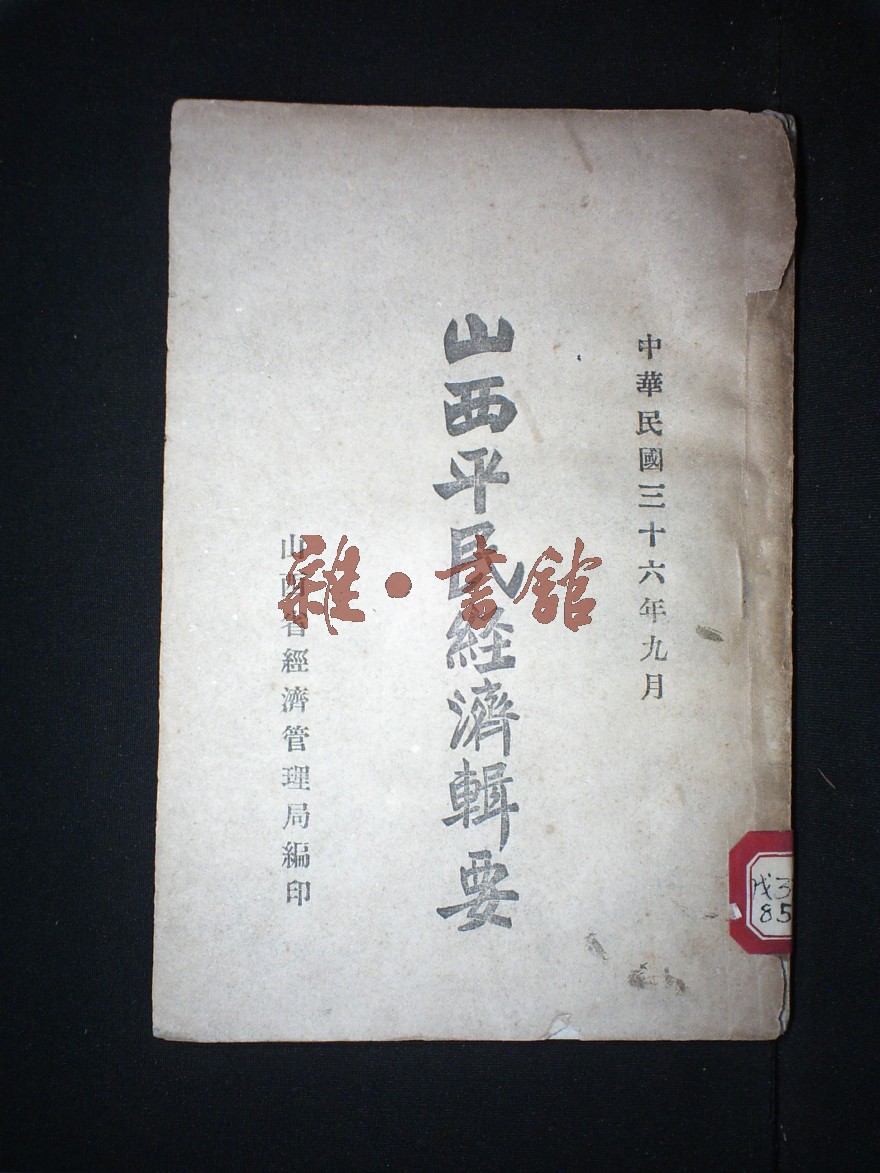 中華民國三十六年九月
山西平民經濟輯要
山西省經濟管理局編印
雜·書館
戊3
85